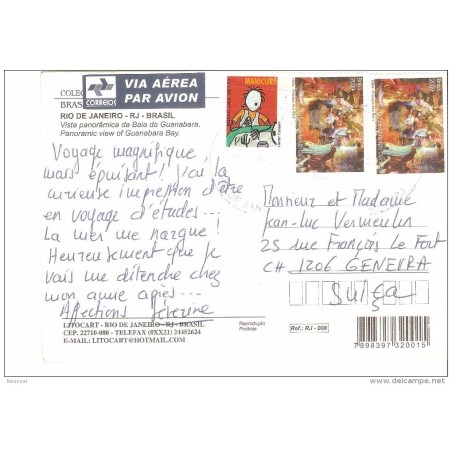 COLE
BRAS
CORREIOS
VIA AÉREA
PAR AVION
RIO DE JANEIRO - RJ - BRASIL
Vista panorâmica da Baía da Guanabara.
Panoramic view of Guanabara Bay.
MANICURE
Voyage magnifique
mais épuisant! j'ai la
curieuse impression d'être
en voyage d'études...
La mer me nargue!
Heureusement que je
vais me détendre chez
mon amie après...
Affections Séverine
Monsieur et Madame
Jean-Luc Vermeulen
25 rue François Le Fort
CH 1206 GENEVRA
Suiça
LITOCART - RIO DE JANEIRO - RJ - BRASIL
CEP. 22710-080 - TELEFAX (0XX21) 24452624
E-MAIL: LITOCART@HOTMAIL.COM
Reprodução
Proibida
Ref.: RJ - 008
7898397320015
Neussal
delcampe.net